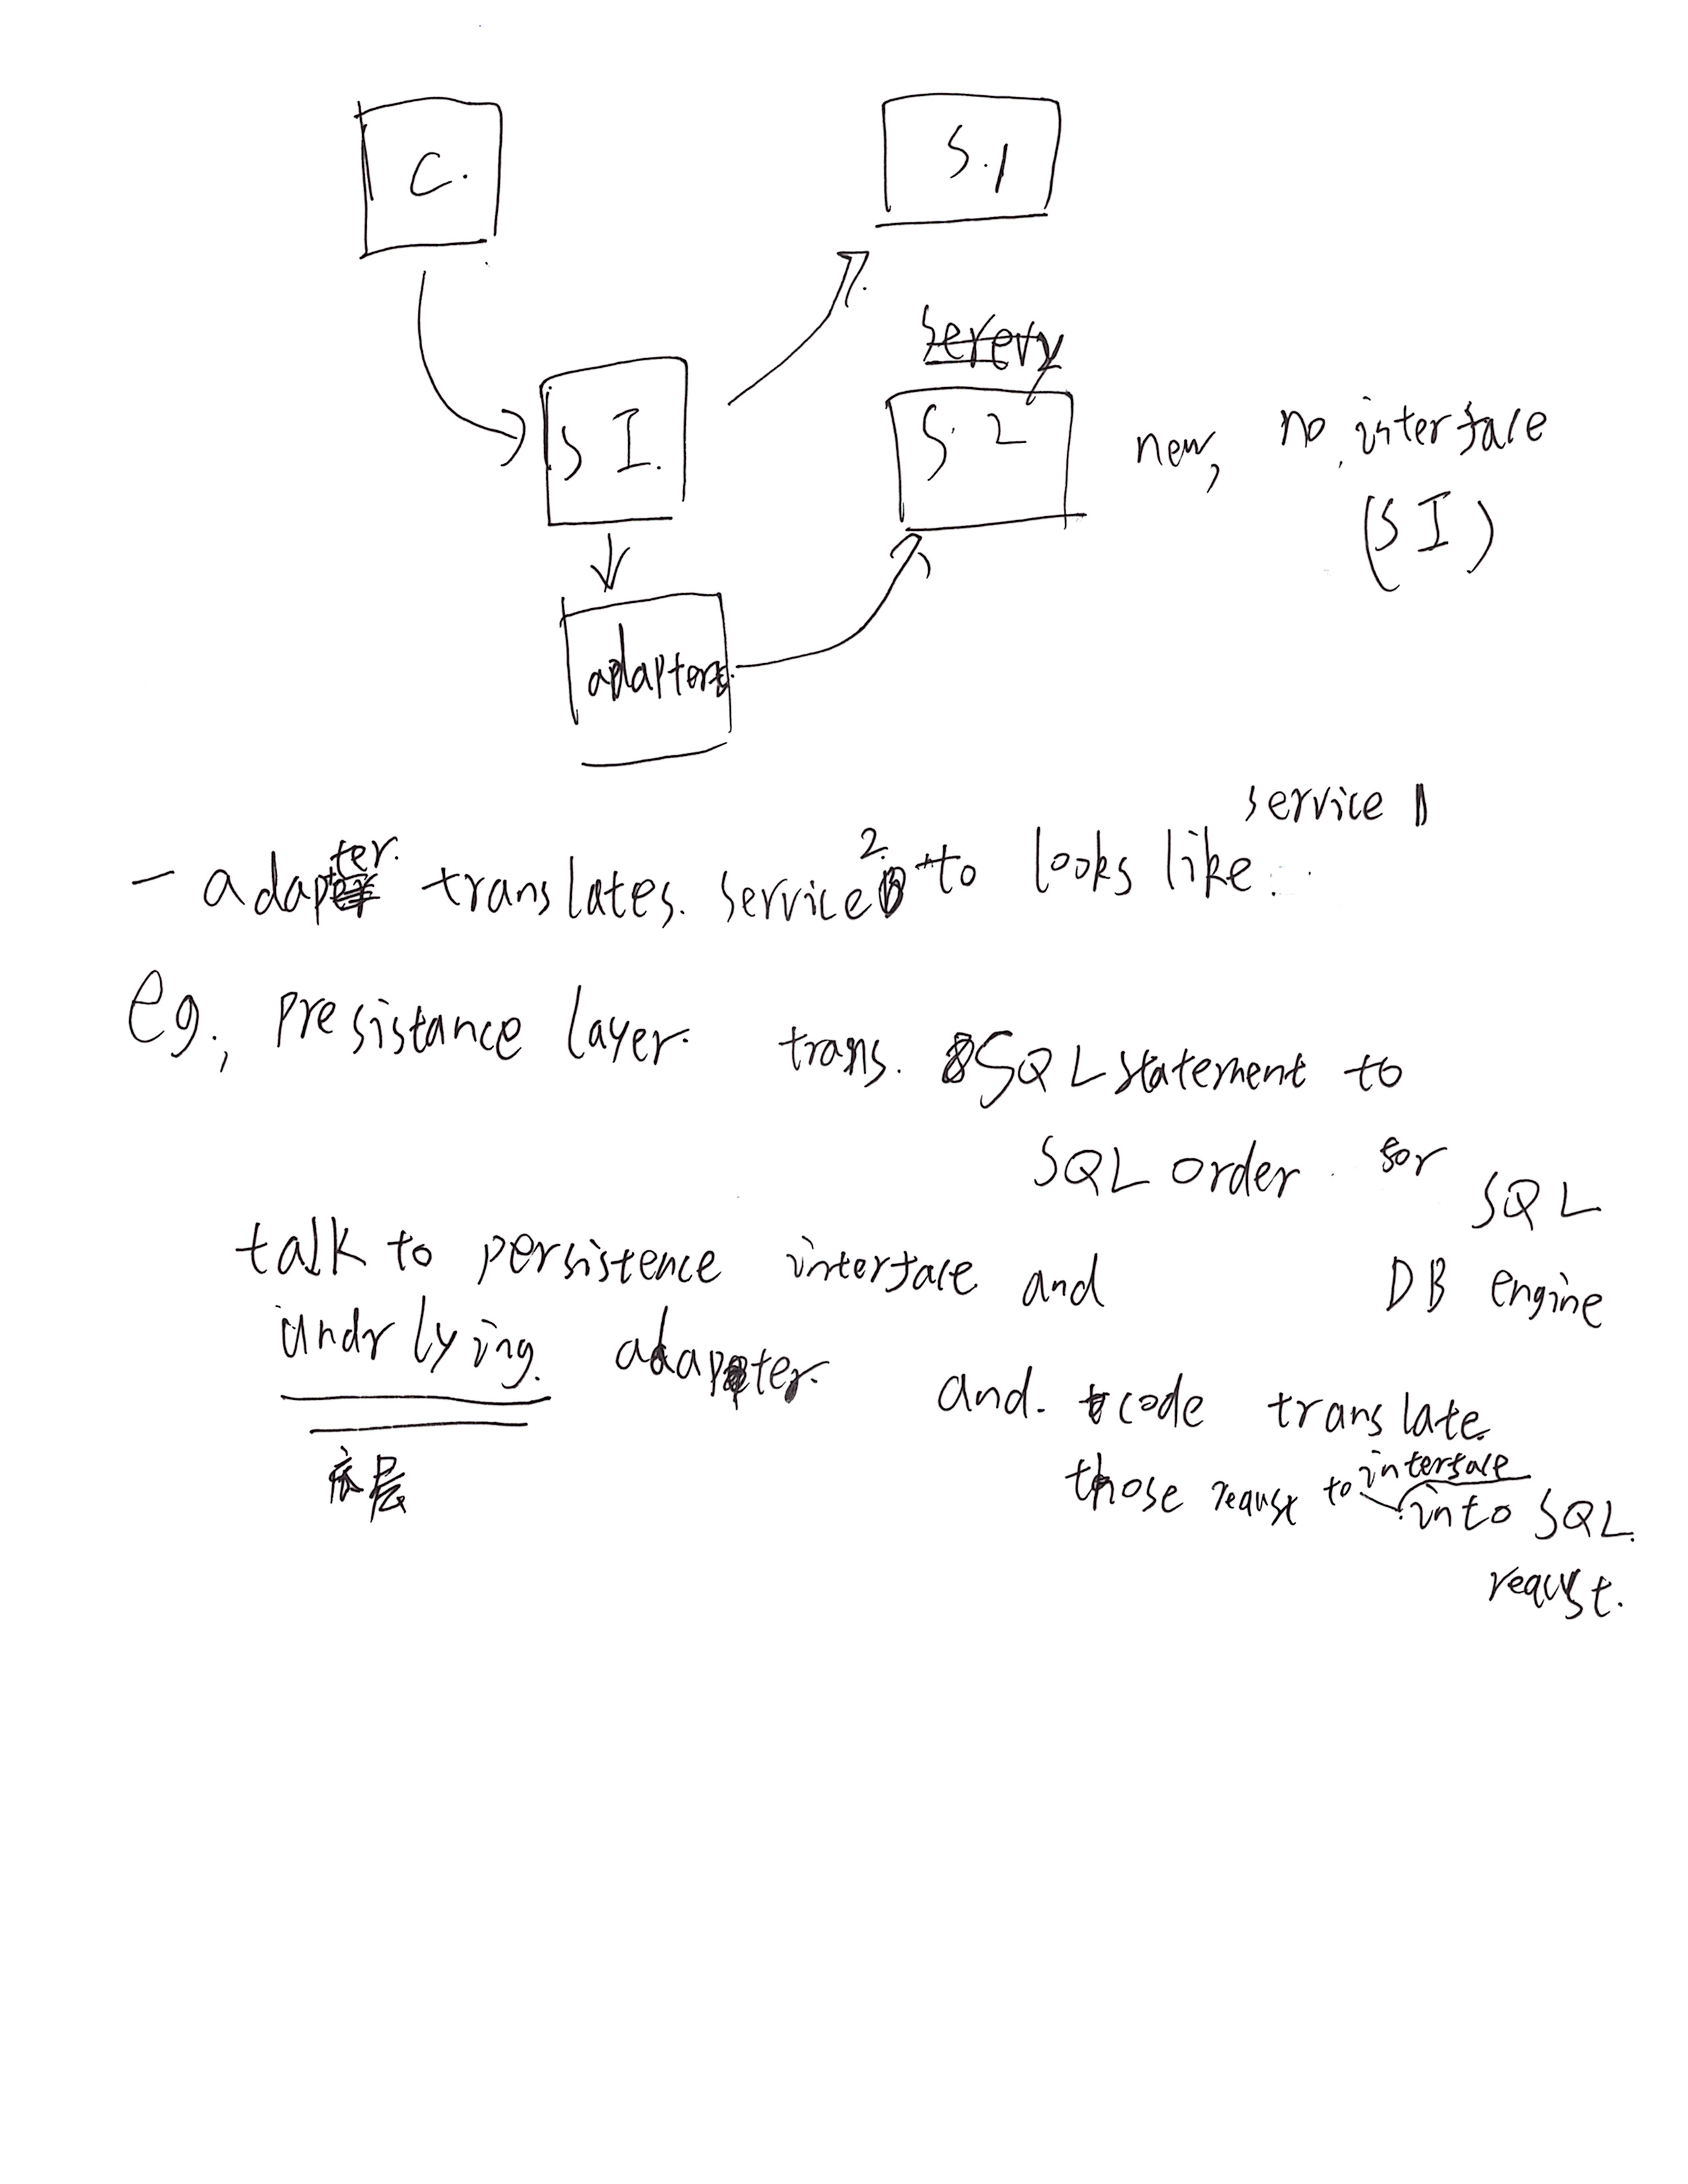 C.
S.1
S I.
S. 2
new, no interface
(S I)
adaptor
service 1
- adapter. translates. service 2. to looks like..
eg., Presistance layer. trans. SQL statement to
SQL order. for SQL
DB engine
talk to persistence interface and
undrlying. adapter.
底层
and. code translate.
those requst to interface into SQL.
requst.